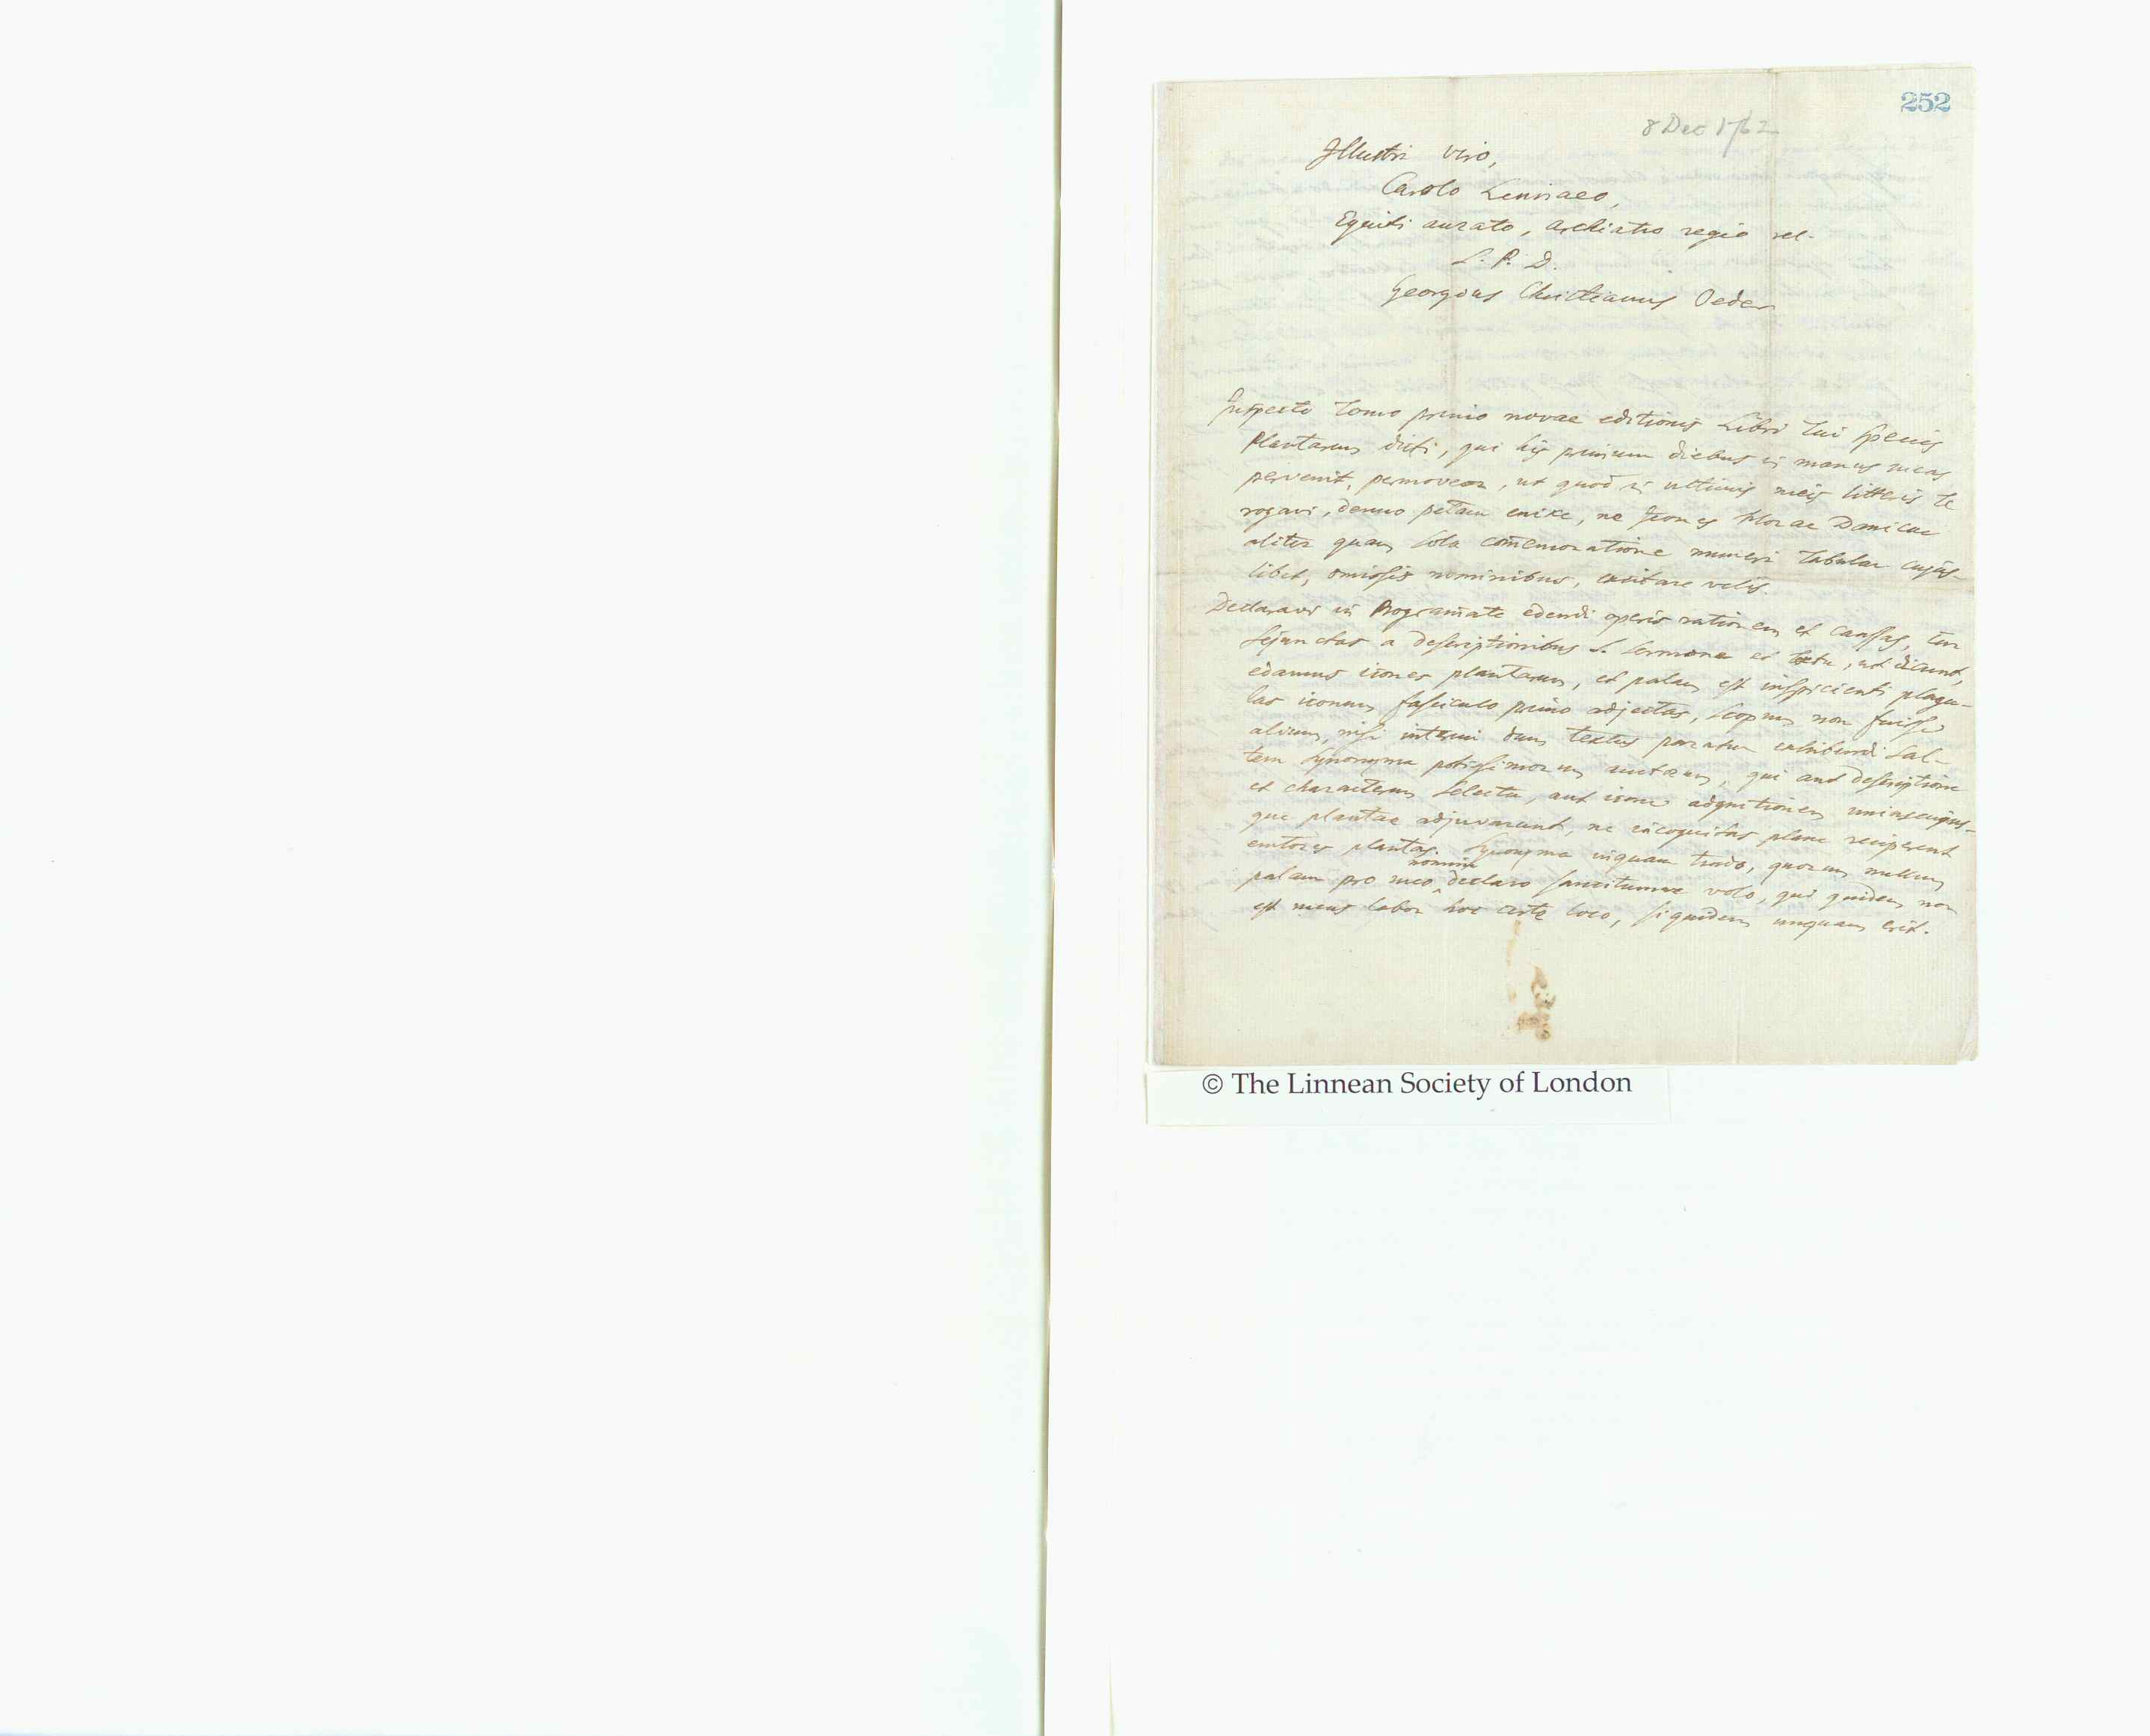 252
8 Dec 1762
Illustri viro,
Carolo Linnaeo,
Equiti aurato, Archiatro regio rel.
S. P. D.
Georgius Christianus Oeder
Inspecto Tomo primo novae editionis Libri tui Species
plantarum dicti, qui his primum diebus in manus meas
pervenit, permoveor, ut quod in ultimis meis litteris te
rogavi, denuo petam enixe, ne Icones Florae Danicae
aliter quam sola com̄emoratione numeri Tabulae cujus-
libet, omissis nominibus, excitare velis.
Declaravi in Program̄ate edendi operis rationem et caussas, cur
sejunctas a descriptionibus s. sermone et textu, ut dicunt,
edamus icones plantarum, et palam est inspicienti plagu-
las iconum fasciculo primo adjectas, scopum non fuisse
alium, nisi interim dum textus paratur exhibendi sal-
tem synonyma potissimorum auctorum, qui aut descriptione
et characterum selectu, aut icone adgnitionem uniuscujus-
que plantae adjuvarunt, ne incognitas plane reciperent
emtores plantas. Synonyma inquam trado, quorum nullum
nomine
palam pro meo declaro sancitumve volo, qui quidem non
est meus labor hoc certe loco, siquidem unquam erit.
© The Linnean Society of London